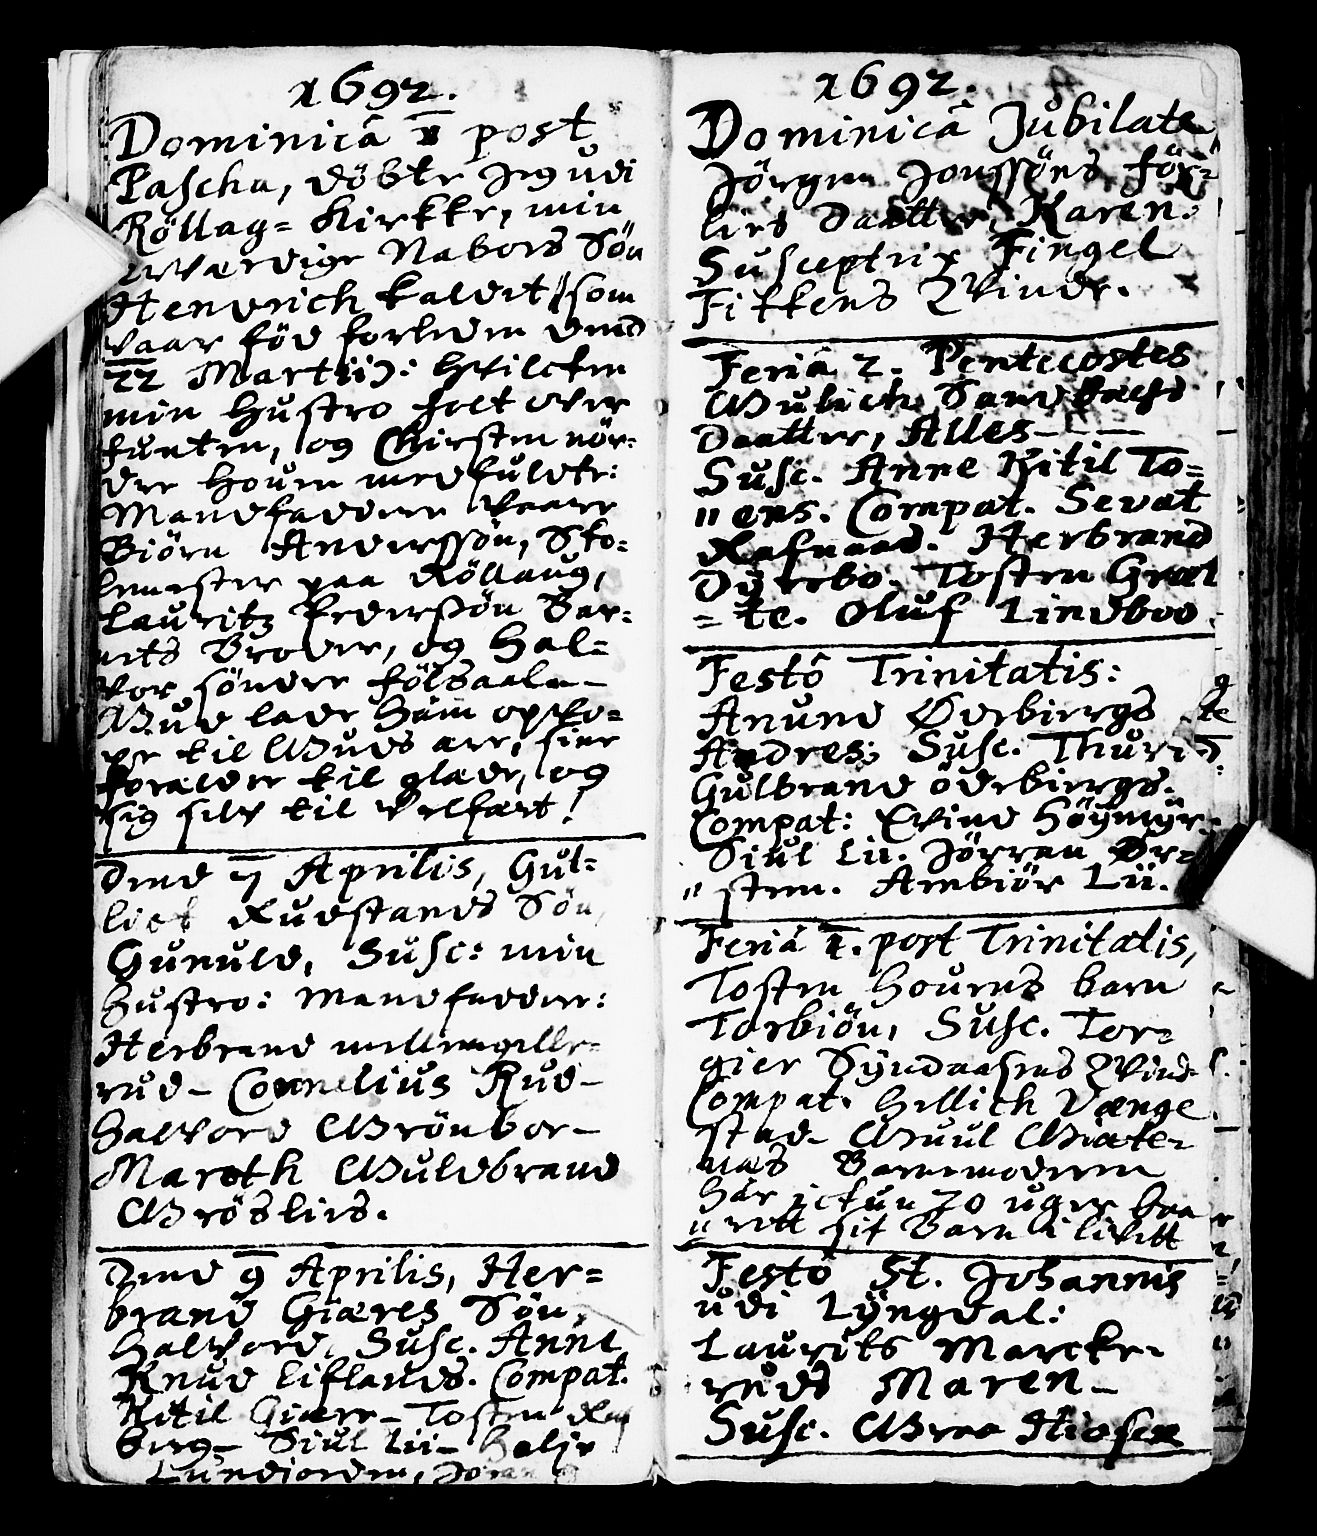 1692.
Dominicâ 1 post
Pascha, döbte Jeg udi
Röllag= Kirkke, min
værdige Nabors Sön
Hendrich kaldet, som
vaar föd forleden dend
22 Martij: hvilcken
min Hustro holt over
funten, og Chirsten nör=
dre Houen medfuldte:
Mandfaddere vaare
Biörn Anderssön, Sko=
lemester paa Röllaug,
Lauritz Pederssön Bar=
nets Broder, og Hal=
vor söndre fölsaaln–
Gud lade ham opko=
me til Guds ære, sine
foreldre til glæde, og
sig selv til velfart!
Dend 7 Aprilis, Gul=
liek Rudstands Sön,
Gunuld, Susc: min
Hustro: Mandfaddere:
Herbrand mellemgelle=
rud– Cornelius Rud–
Halvord Grönbor–
Mareth Guldbrand
Gröslies.
Dend 9 Aprilis, Her=
brand Giæres Sön,
Halvord, Susc. Anne
Knud Liflands. Compat.
Kitil Giære– Tosten
berg– Siul Lii– Halje
Lundiorden,
1692.
Dominicâ Jubilate
Jörgen Jonssöns för=
lies Daatter, Karen.
Susceptrix Fingel
Fikkens Qvinde.
Feriâ 2. Pentecostes
Gulich Sandbachs
Daatter, Alles–
Susc. Anne Kitil To=
"ens. Compat. Sevat
Rafnaas. Herbrand
Dÿrebo. Tosten Græt
=te. Oluf Lindboo.
Festô Trinitatis:
Anund Öderbiergs
Andres: Susc. Thuri
Gulbrand öderbiergs.
Compat: Evind Höÿmÿr.
Siul Lii. Jörran Ör=
"sten. Ambiör Lii.
Feriâ 1. post Trinitatis,
Tosten Houens barn
Torbiön, Susc. Tor=
gier Sÿndaasens Qvind.
Compat. Hellich Vænge
stad– Guul Giæte=
næs Barnemoderen
har ickun 20 uger baa
"rett sit Barn i livett
Festô St. Johannis
udi Lÿngdal:
Laurits Marcke=
ruds Maren–
Susc. Graa Hiosen